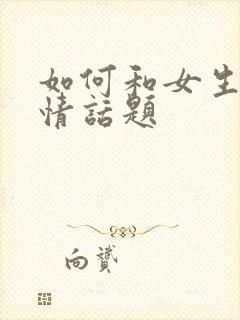 如何和女生
情話題
向贇